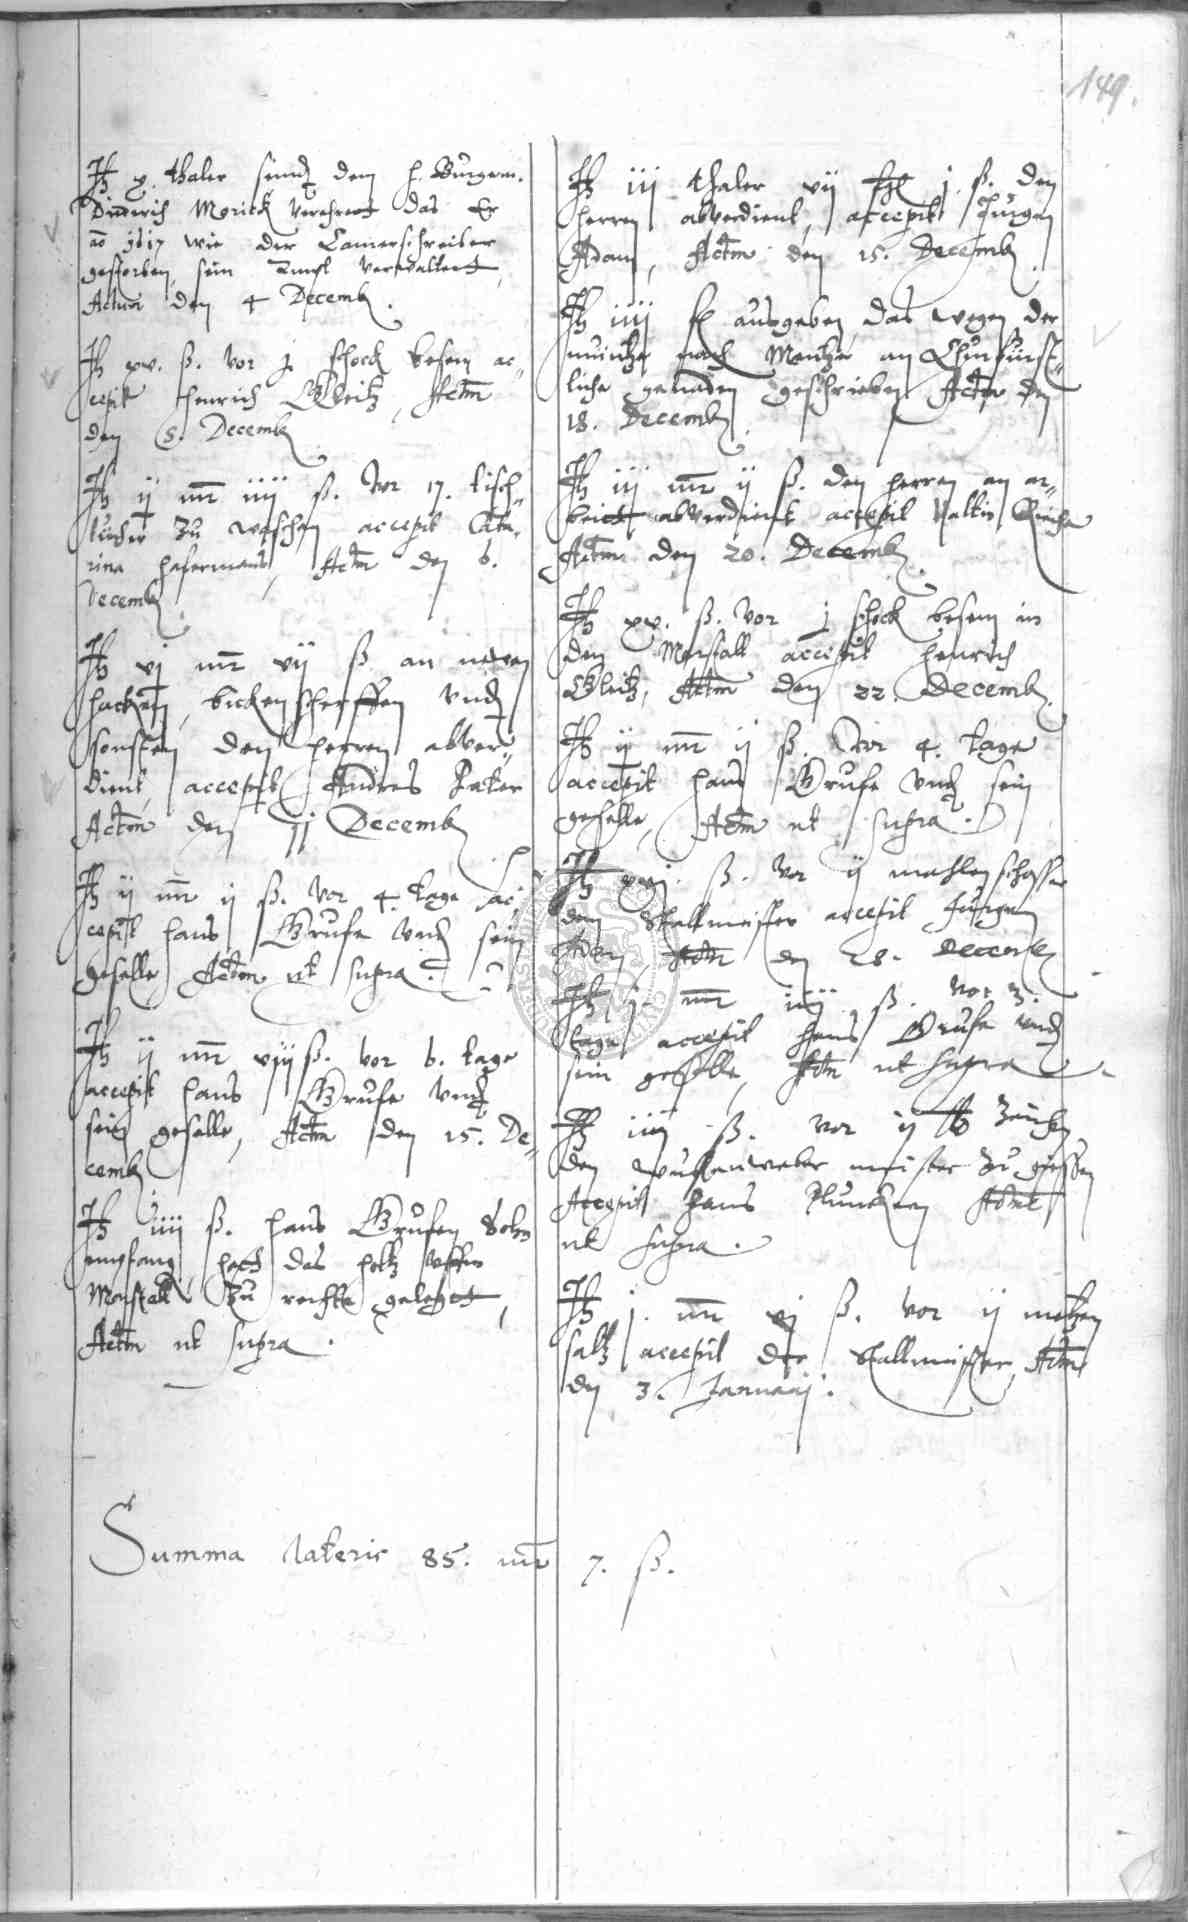 149.
It x. thaler seind dem H. Burgerm.
Diderich Morick verehrent das Er
ao 1617 wie der Camerschreiber
gestorben, sein Ampt verwaltent,
Actum den 4 Decemb.
It xv. ß. vor j schock besem ac„
cepit Henrich Gleitz, Actm
den 5. Decemb
It ij mr iiij ß. vor 17. tisch„
tucher zu weschen accepit Cata„
rina Hafermans, Actm den 6.
Decemb
It vj mr vij ß an newen
hacken, bicken scherffen vnd
sonsten den herren abver„
dient, accepit Andres
Actm den 11 Decemb
It ij mr ij ß. vor 4. tage ac„
cepit Hans Grufe vnd sein
geselle Actm ut supra.
It ij mr viij ß. vor 6. tage
accepit Hans Grufe vnd
sein geselle, Actm den 15. De„
cemb
It iiij ß. Hans Grufen Sohn
empfang, hatt das holtz vffm
Marstall zu rechte gelegett,
Actm ut supra.
It iij thaler vij j. ß. den
herren abverdient, accepit Jurgen
Adam, Actm den 15. Decemb
It iiij fl ausgeben, das wegen der
muintze nach Mentze an Churfurst„
liche gnaden geschrieben Actm den
18. Decemb
It iij mr ij ß. den herren an ar„
beit abverdient accepit Valtin
Actm den 20. Decemb
It xv. ß. vor j schock besem in
den Marstall accepit Henrich
Gleitz, Actm den 22. Decemb
It ij mr ij ß. vor 4. tage
accepit Hans Grufe vnd sein
geselle, Actm ut supra.
It ß. vor ij mahlenschosser
dem Stallmeister accepit Jurgen
Adam Actm den 28. Decemb
It j. mr iiij ß. vor 3.
tage accepit Hans Grufe vnd
sein geselle, Actm ut supra
It iiij ß. vor ij lb
den meister zu giessen
Accepit Hans Actm
ut supra.
It j. mr vj ß. vor ij metzen
saltz accepit der Stallmeister, Actm
den 3. Januarij.
Summa lateris 85. mr 7. ß.